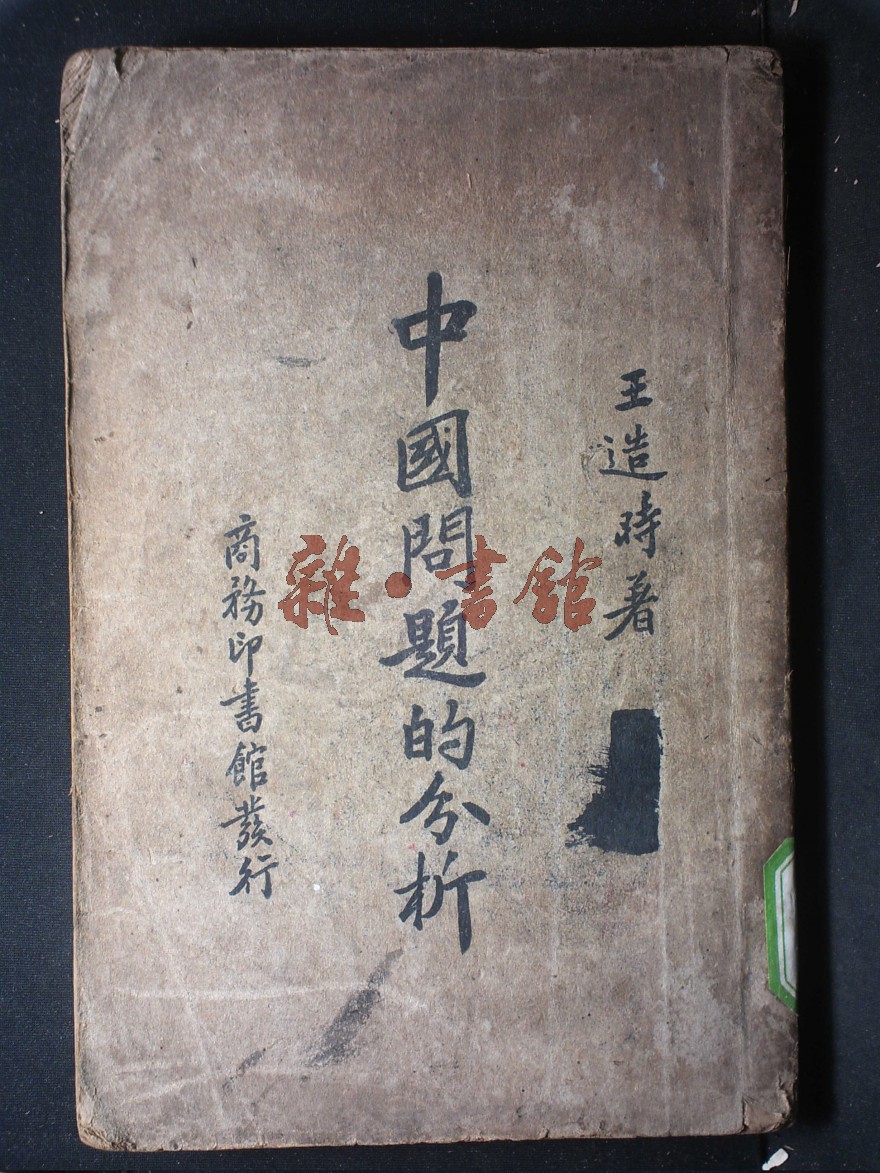 王造時著
中國問題的分析
商務印書館發行
雜·書館